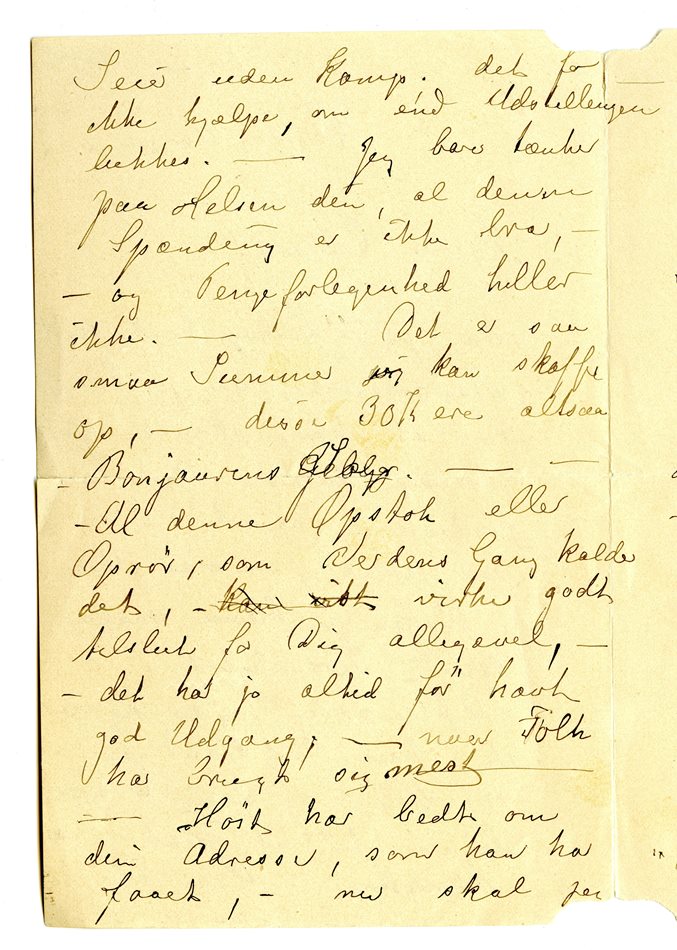 Seir uden Kamp. det fo
ikke hjælpe, om end Udstillingen
lukkes. — Jeg bare tænker
paa Helsen din, al denne
Spænding er ikke bra, –
– og Pengeforlegenhed heller
ikke. — Det er saa
smaa Summer jeg kan skaffe
op, – disse 30 K ere altsaa
– Bonjourens —
– Al denne Opstok eller
Oprör, som Verdens Gang kalder
det, – kan vist virke godt
tilslut fo Dig allegavel, –
– det har jo altid för havt
god Udgang, — naar Folk
har brugt sig mest
— Höst har bedt om
din Adresse, som han ha
faaet, – nu skal jeg